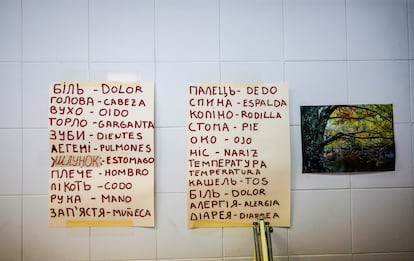 БІЛЬ - DOLOR
ГОЛОВА - CABEZA
ВУХО - OIDO
ТОРЛО - GARGANTA
ЗУБИ - DIENTES
ЛЕГЕНІ - PULMONES
ШЛУНОК - ESTOMAGO
ПЛЕЧЕ - HOMBRO
ЛІКОТЬ - CODO
РУКА - MANO
ЗАП'ЯСТЯ - MUÑECA
ПАЛЕЦЬ - DEDO
СПИНА - ESPALDA
КОЛІНО - RODILLA
СТОПА - PIE
ОКО - OJO
НІС - NARIZ
ТЕМПЕРАТУРА
TEMPERATURA
КАШЕЛЬ - TOS
БІЛЬ - DOLOR
АЛЕРГІЯ - ALERGIA
ДІАРЕЯ - DIARREA